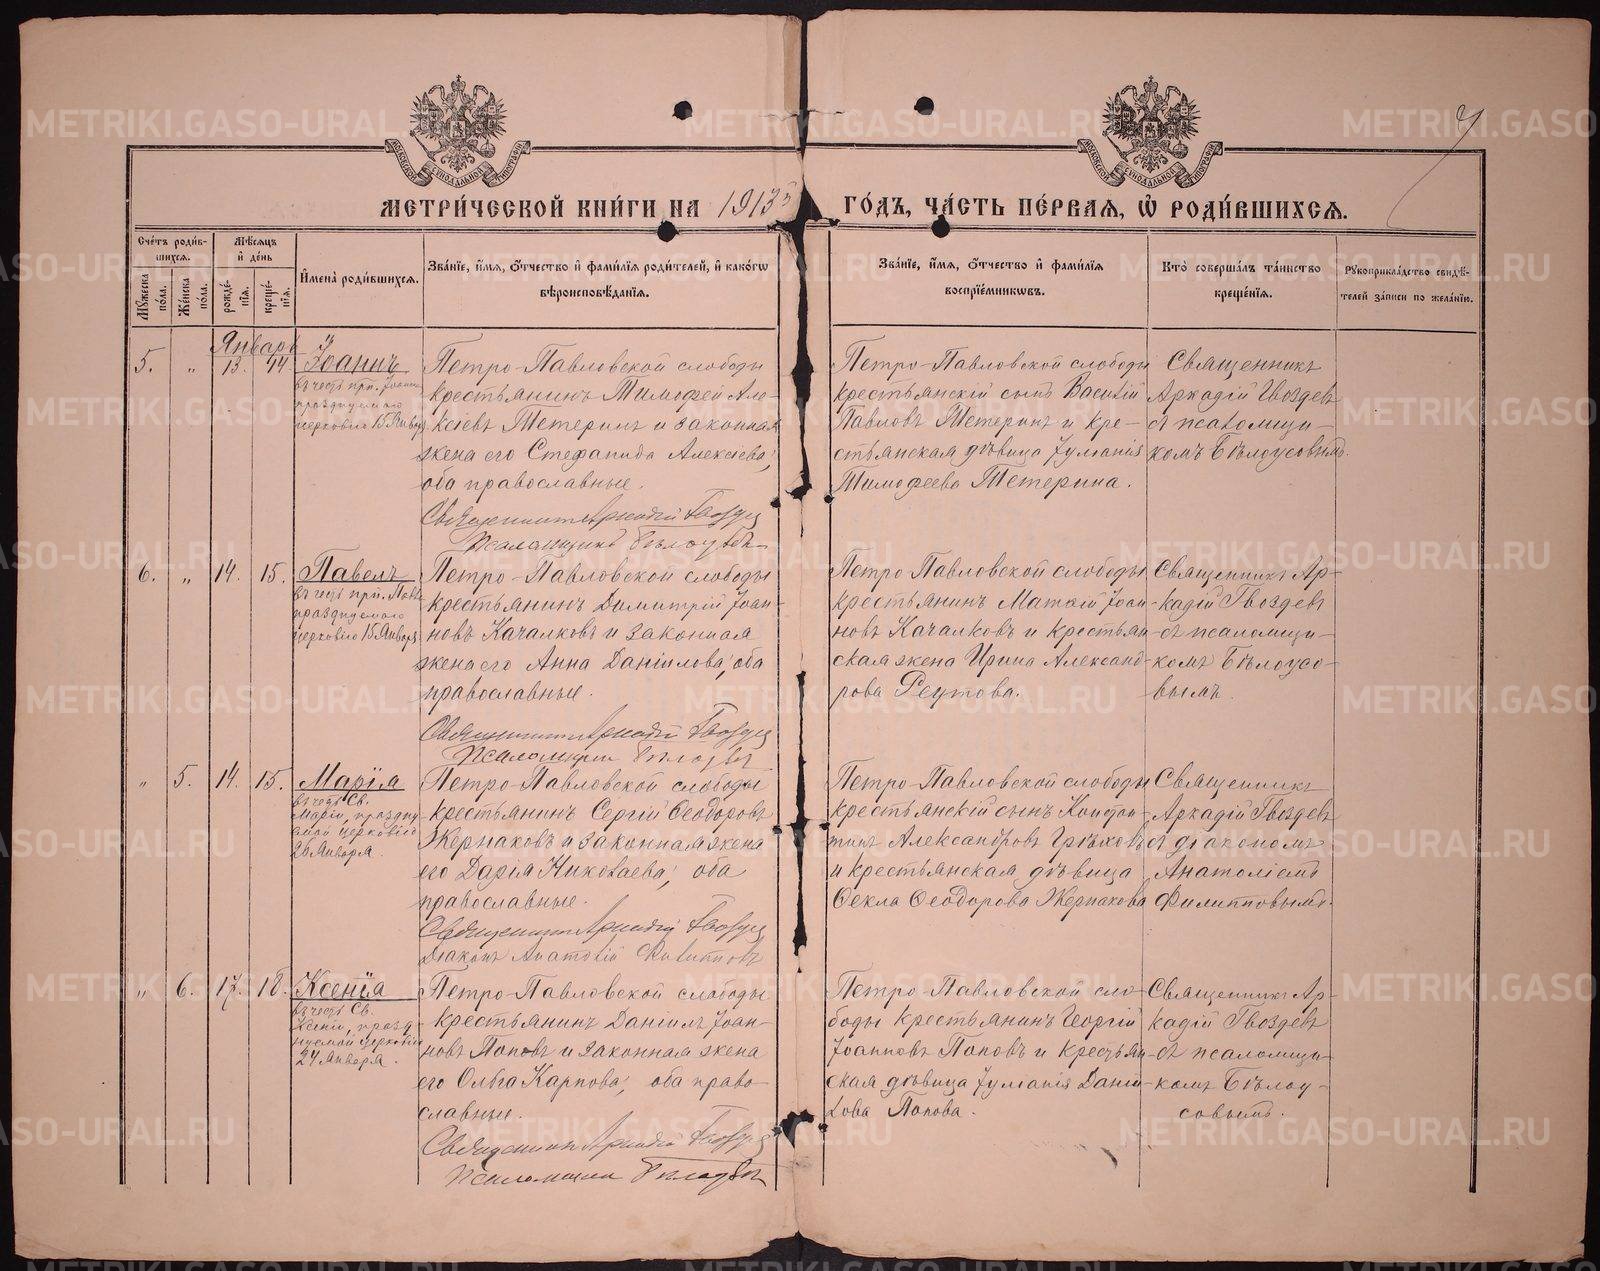 МЕТРИ́ЧЕСКОЙ КНИ́ГИ НА 1913й ГО́ДЪ, ЧА́СТЬ ПЕ́РВАЯ, Ѡ РОДИ́ВШИХСЯ.
Сче́тъ роди́вшихся.
Мѣ́сяцъ и де́нь
Имена̀ роди́вшихся.
Зва́нїе, и́мя, о́тчество и фами́лїя роди́телей, и како́гѡ вѣроисповѣ́данїя.
Зва́нїе, и́мя, о́тчество и фами́лїя воспрїе́мникѡвъ.
Кто̀ соверша́лъ та́инство креще́нїя.
Рꙋкоприкла́дство свидѣ́телей за́писи по жела́нїю.
Мꙋ́жеска по́ла.
Же́нска по́ла.
рожде́нїя.
креще́нїя.
Январь
5. " 13. 14. Іоаннъ
въ честь прп. Іоанна
празднуемаго
церковію 15 Января
Петро-Павловской слободы
крестьянинъ Тимофей Але-
ксіевъ Тетеринъ и законная
жена его Стефанида Алексіева;
оба православные.
Священникъ Аркадій Гвоздев
Псаломщикъ Бѣлоусовъ
Петро-Павловской слободы
крестьянскій сынъ Василій
Павловъ Тетеринъ и кре-
стьянская дѣвица Іуліанія
Тимофеева Тетерина.
Священникъ
Аркадій Гвоздевъ
съ псаломщи-
комъ Бѣлоусовымъ.
6. " 14. 15. Павелъ
въ честь прп. Павла
празднуемаго
церковію 15 Января
Петро-Павловской слободы
крестьянинъ Димитрій Іоан-
новъ Качалковъ и законная
жена его Анна Даніилова; оба
православные.
Священникъ Аркадій Гвоздев
Псаломщикъ Бѣлоусовъ
Петро-Павловской слободы
крестьянинъ Матѳій Іоан-
новъ Качалковъ и крестьян-
ская жена Ирина Александ-
рова Реутова.
Священникъ Ар-
кадій Гвоздевъ
съ псаломщи-
комъ Бѣлоусо-
вымъ.
" 5. 14. 15. Марія
въ честь Св.
Маріи, праздну-
емой церковію
26 Января.
Петро-Павловской слободы
крестьянинъ Сергій Ѳеодоровъ
Жернаковъ и законная жена
его Дарія Николаева; оба
православные.
Священникъ Аркадій Гвоздев
Діаконъ Анатолій Филипповъ
Петро-Павловской слободы
крестьянскій сынъ Констан-
тинъ Александровъ Грѣховъ
и крестьянская дѣвица
Ѳекла Ѳеодорова Жернакова
Священникъ
Аркадій Гвоздевъ
съ діакономъ
Анатоліемъ
Филипповымъ.
" 6. 17. 18. Ксенія
въ честь Св.
Ксеніи, празд-
нуемой церковію
24 Января.
Петро-Павловской слободы
крестьянинъ Даніилъ Іоан-
новъ Поповъ и законная жена
его Ольга Карпова; оба право-
славные.
Священникъ Аркадій Гвоздев
Псаломщикъ Бѣлоусовъ
Петро-Павловской сло-
боды крестьянинъ Георгій
Іоанновъ Поповъ и крестьян-
ская дѣвица Іуліанія Даніи-
лова Попова.
Священникъ Ар-
кадій Гвоздевъ
съ псаломщи-
комъ Бѣлоу-
совымъ.
METRIKI.GASO-URAL.RU